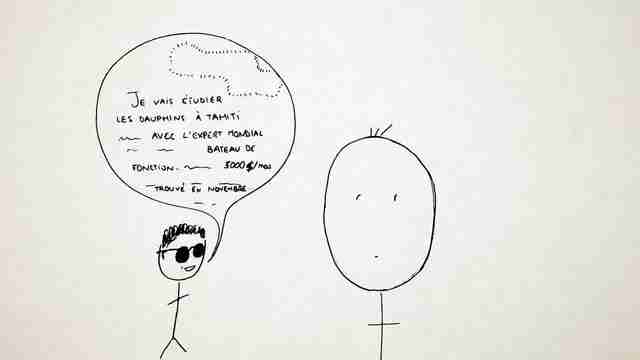 JE VAIS ÉTUDIER
LES DAUPHINS À TAHITI
AVEC L'EXPERT MONDIAL
BATEAU DE
FONCTION. 3000$/MOIS
TROUVÉ EN NOVEMBRE